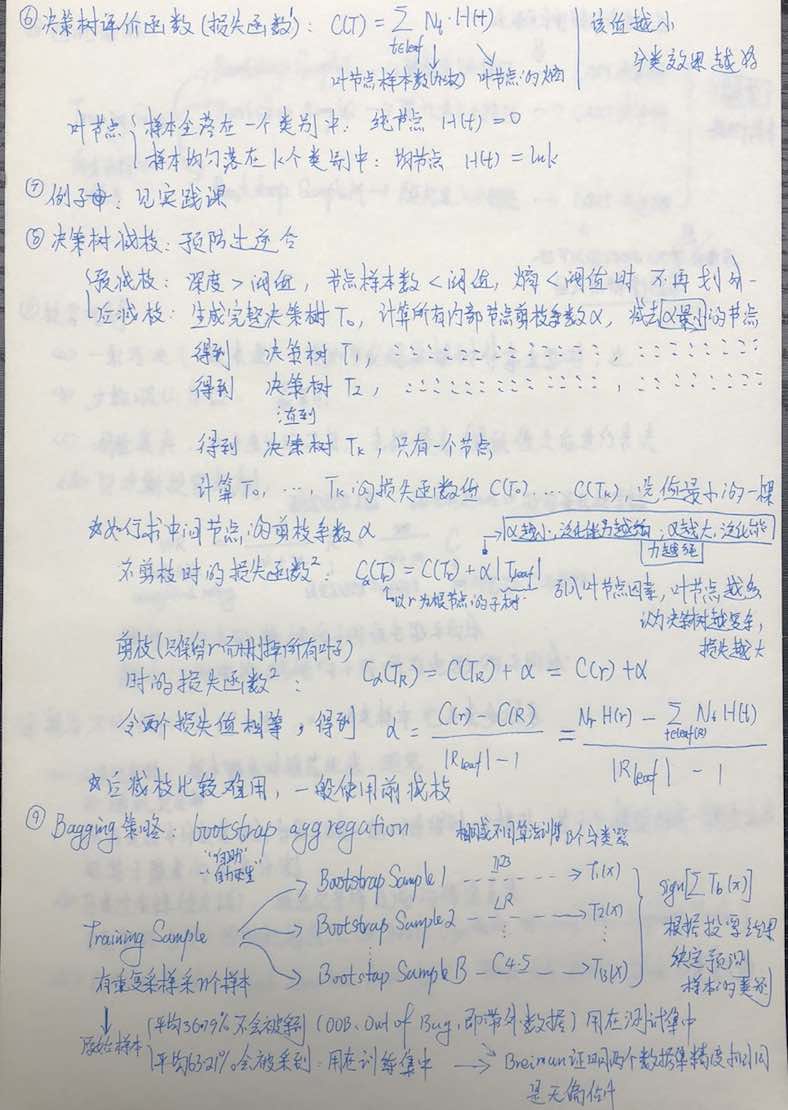 ⑥ 决策树评价函数(损失函数): C(T) = Σ Nt·H(t) 该值越小
t∈leaf 分类效果越好
叶节点样本数(加权) 叶节点的熵
叶节点 { 样本全落在一个类别中: 纯节点 H(t) = 0
样本均匀落在k个类别中: 均节点 H(t) = lnk
⑦ 例子: 见实践课
⑧ 决策树减枝: 预防过拟合
{ 预减枝: 深度 > 阈值, 节点样本数 < 阈值, 熵 < 阈值时 不再划分
后减枝: 生成完整决策树 T₀, 计算所有内部节点剪枝系数α, 减去α最小的节点
得到 决策树 T₁,
得到 决策树 T₂,
直到
得到 决策树 Tk, 只有一个节点
计算 T₀, ..., Tk 的损失函数值 C(T₀) ... C(Tk), 选值最小的一棵
如何求中间节点的剪枝系数α
α越小, 泛化能力越弱; α越大, 泛化能
力越强
不剪枝时的损失函数²: Cα(T) = C(T) + α|Tleaf| 引入叶节点因素, 叶节点越多
以r为根节点的子树 认为决策树越复杂,
损失越大
剪枝(只保留r而删掉所有叶子)
时的损失函数²: Cα(TR) = C(TR) + α = C(r) + α
令两个损失值相等, 得到 α = (C(r) - C(R)) / (|Rleaf| - 1) = (Nr H(r) - Σ t∈leaf(R) Nt H(t)) / (|Rleaf| - 1)
后减枝比较难用, 一般使用前减枝
⑨ Bagging策略: bootstrap aggregation 相同或不同算法训练B个分类器
"自助"
Training Sample
Bootstrap Sample 1 ID3 → T1(x)
Bootstrap Sample 2 LR → T2(x)
Bootstap Sample B C4.5 → TB(x)
sign[Σ Tb(x)]
根据投票结果
决定预测
样本的类别
有重复采样采n个样本
原始样本 { 平均36.79% 不会被采到 (OOB, Out of Bag, 即带外数据) 用在测试集中
平均63.21% 会被采到: 用在训练集中 → Breiman证明两个数据集精度相同
是无偏估计